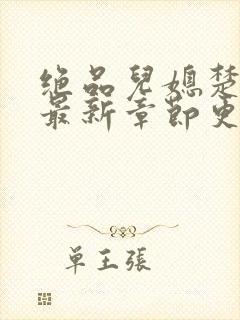 绝品兒媳楚
最新章節更
单王張